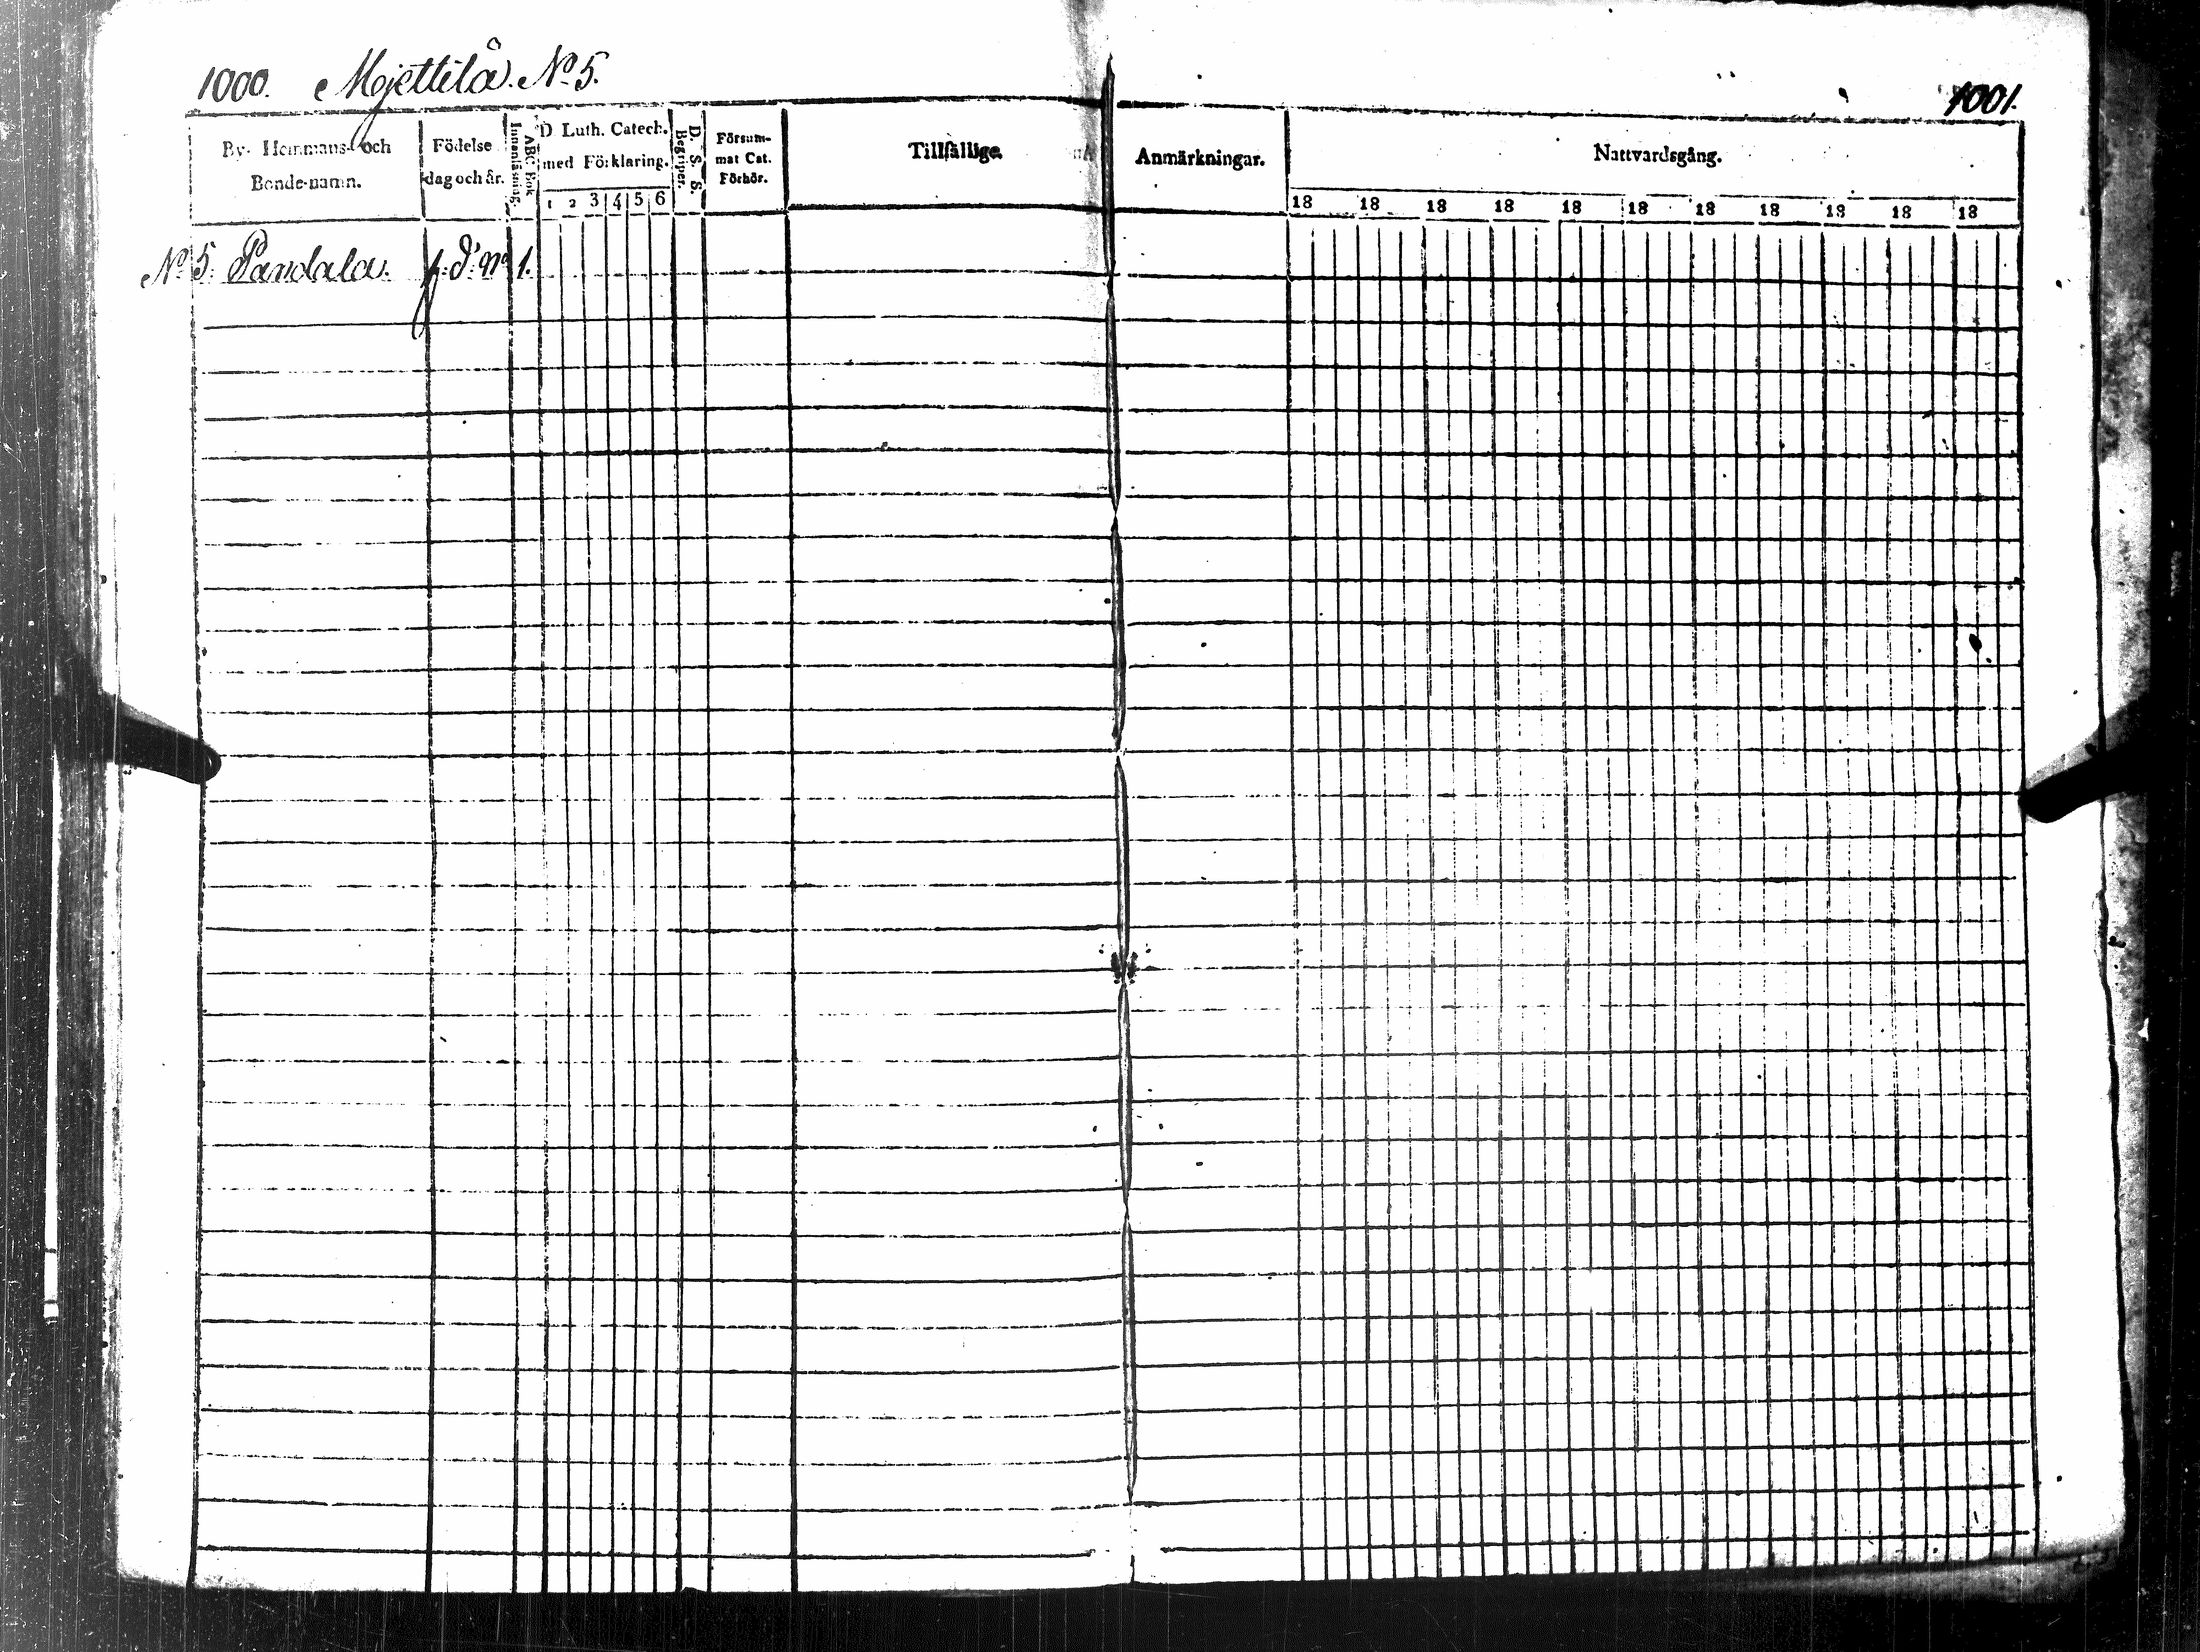 1000. Mjettilä. No 5.
1001.
By- Hemmans- och
Bonde-namn.
Födelse
dag och år.
ABC Bok
Innanläsning.
D Luth. Catech.
med Förklaring.
1 2 3 4 5 6
D. S. S.
Begriper.
Försum-
mat Cat.
Förhör.
Tillfällige
Anmärkningar.
Nattvardsgång.
18 18 18 18 18 18 18 18 18 18 18
No 5. Pandala. f. d. No 1.